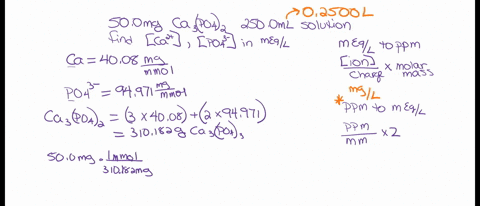 →0.2500L
50.0mg Ca₃(PO₄)₂ 250.0mL solution
find [Ca²⁺], [PO₄³⁻] in mEq/L
Ca = 40.08 mg/mmol
PO4³⁻ = 94.971 mg/mmol
Ca₃(PO₄)₂ = (3 × 40.08) + (2 × 94.971)
= 310.182g Ca₃(PO₄)₃
50.0mg · 1mmol/310.182mg
mEq/L to ppm
[ion]/charge × molar mass
mg/L
*ppm to mEq/L
ppm/mm × Z